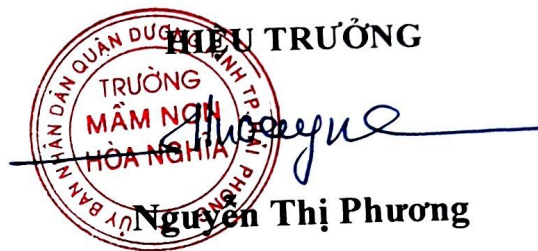 HIỆU TRƯỞNG
ỦY BAN NHÂN DÂN QUẬN DƯƠNG KINH TP. HẢI PHÒNG
TRƯỜNG
MẦM NON
HÒA NGHĨA
Nguyễn Thị Phương